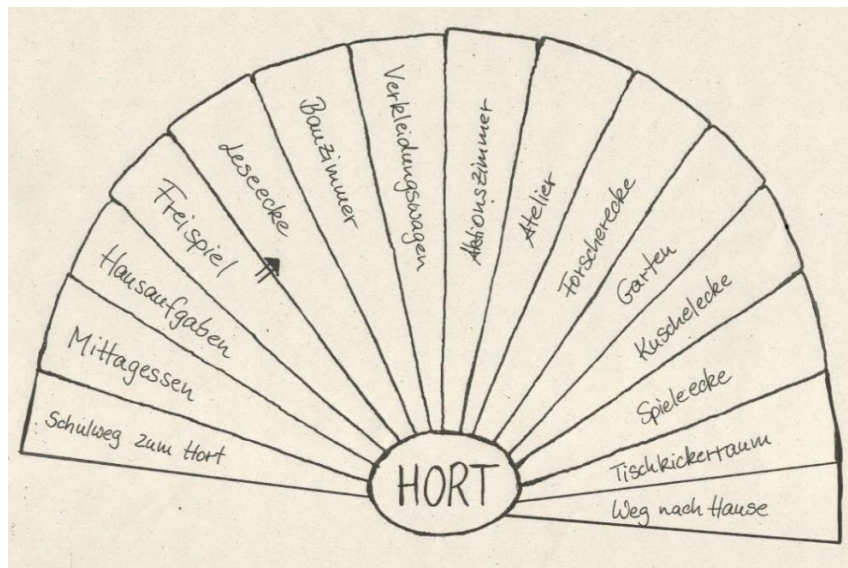 Schulweg zum Hort
Mittagessen
Hausaufgaben
Freispiel
Leseecke
Bauzimmer
Verkleidungswagen
Aktionszimmer
Atelier
Forscherecke
Garten
Kuschelecke
Spieleecke
Tischkickerraum
Weg nach Hause
HORT